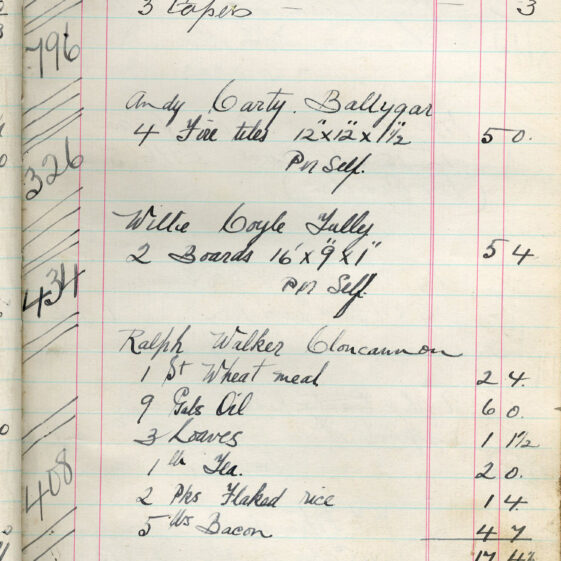 3 Papers — — 3
796
Andy Carty. Ballygar
4 Fire tiles 12"x12"x1½ 5 0.
Per Self.
326
Willie Coyle Tully
2 Boards 16'x9"x1" 5 4
Per Self.
434
Ralph Walker Cloncannon
1 St Wheat meal 2 4.
9 Gals Oil 6 0.
3 Loaves 1 1½
1 lb Tea. 2 0.
408
2 Pks Flaked rice 1 4
5 lbs Bacon 4 7
17 4½